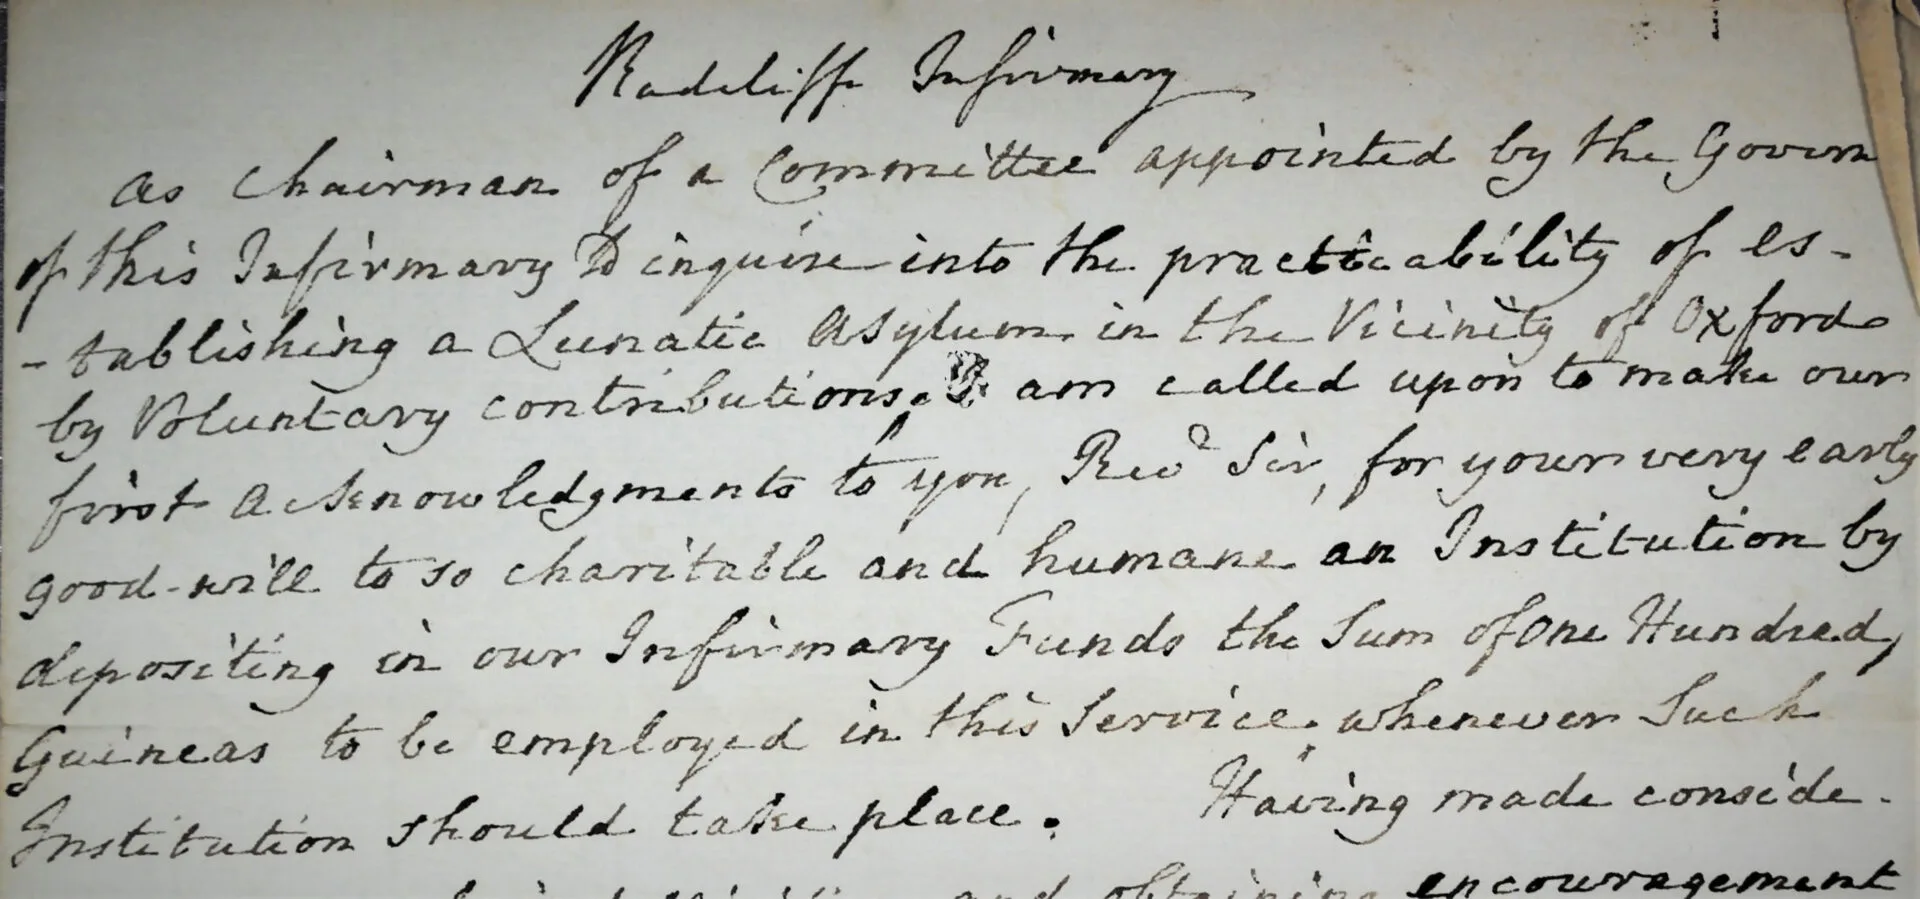 Radcliffe Infirmary
As Chairman of a Committee appointed by the Govern
of this Infirmary to inquire into the practicability of es-
-tablishing a Lunatic Asylum in the Vicinity of Oxford
by Voluntary contributions. I am called upon to make our
first acknowledgments to you, Revd Sir, for your very early
good-will to so charitable and humane an Institution by
depositing in our Infirmary Funds the Sum of One Hundred
Guineas to be employed in this Service whenever Such
Institution should take place. Having made conside-
and obtaining encouragement